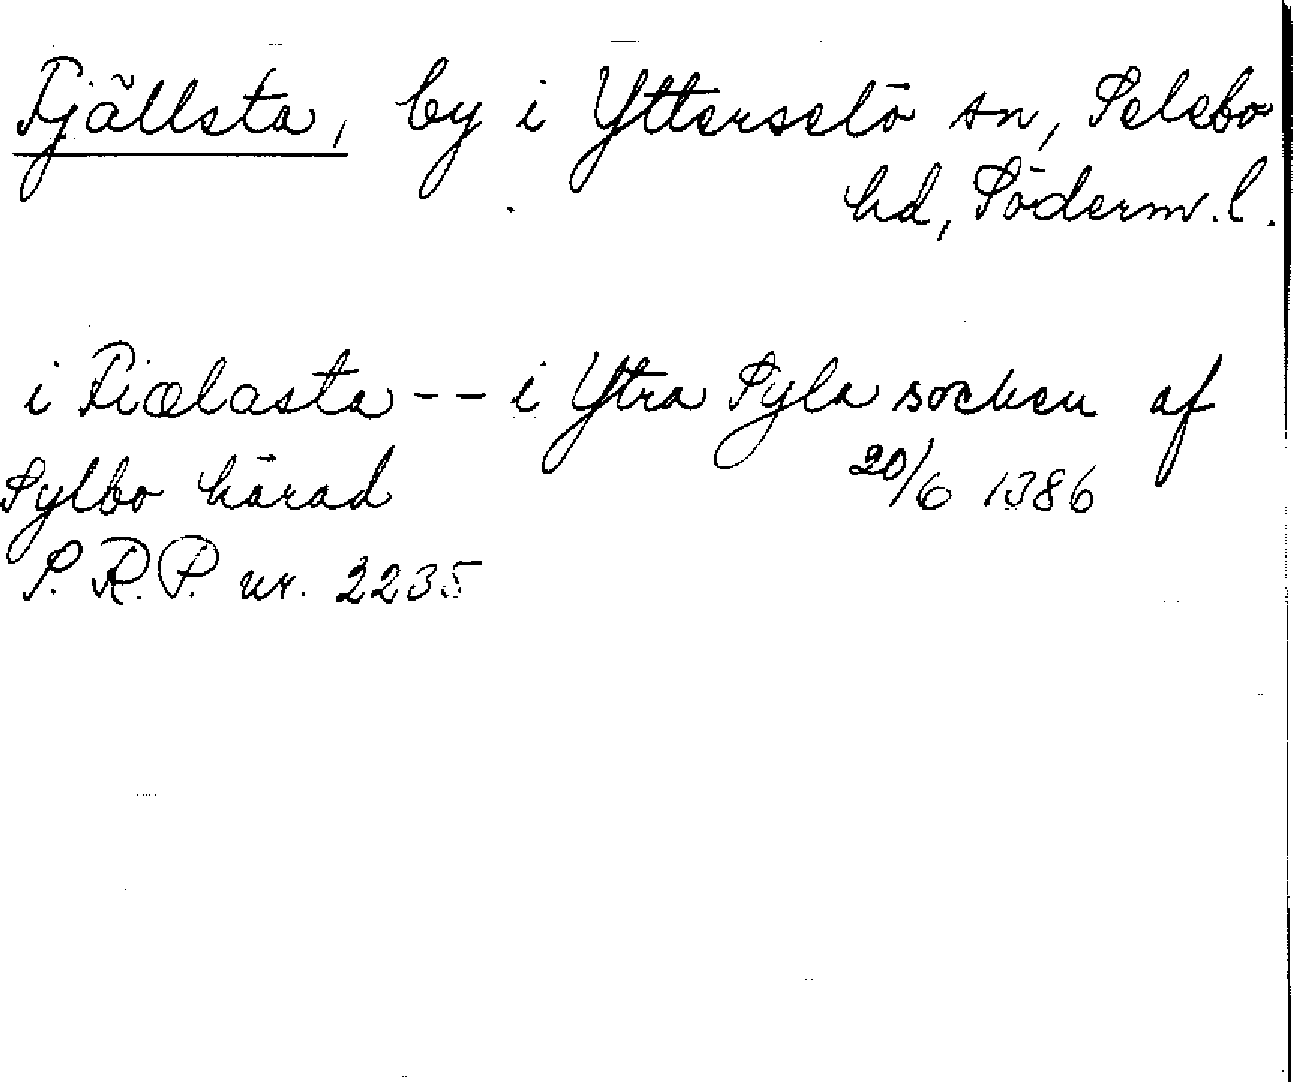 Fjällsta, by i Ytterselö sn, Selebo
hd, Söderm. l.
i Fiælasta -- i Ytra Syla socken af
Sylbo härad 20/6 1386
S. R. P. nr. 2235